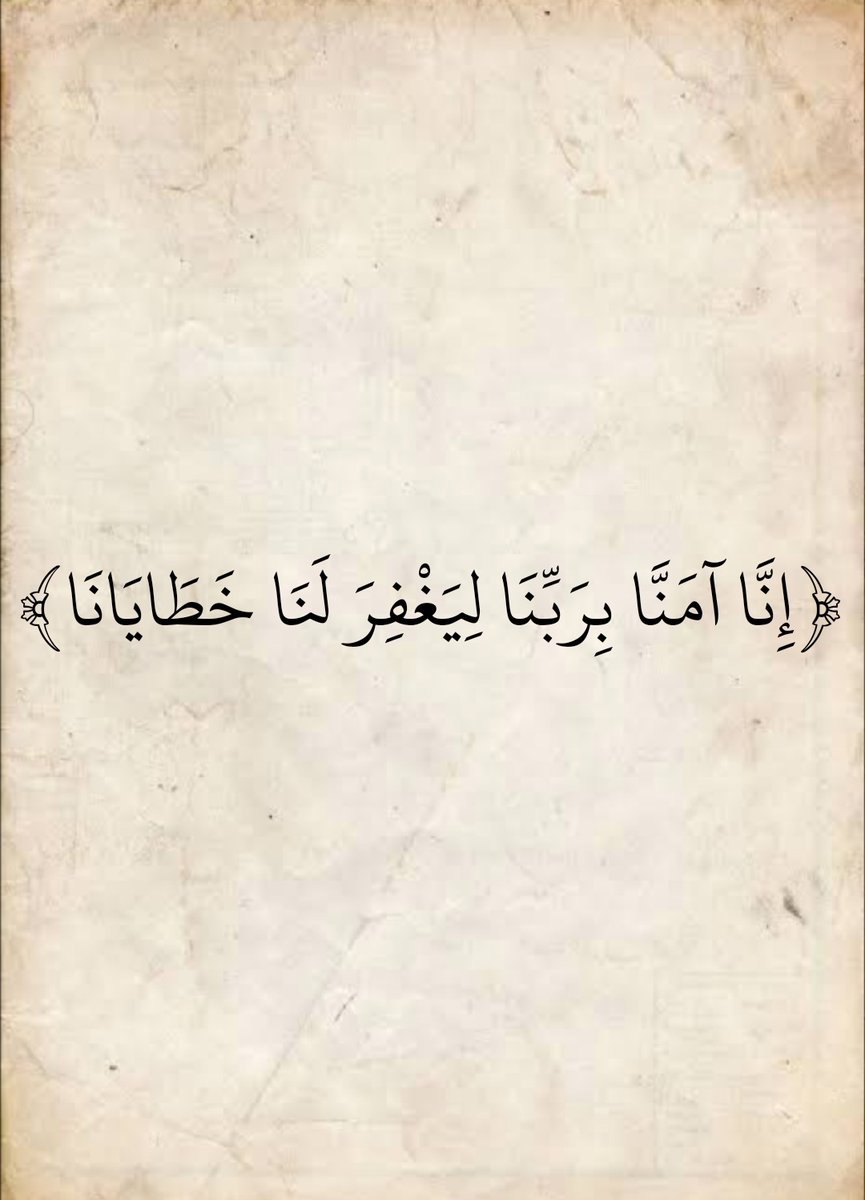 ﴿إِنَّا آمَنَّا بِرَبِّنَا لِيَغْفِرَ لَنَا خَطَايَانَا﴾